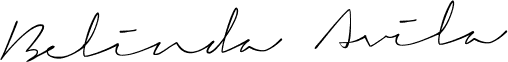 Belinda Avila